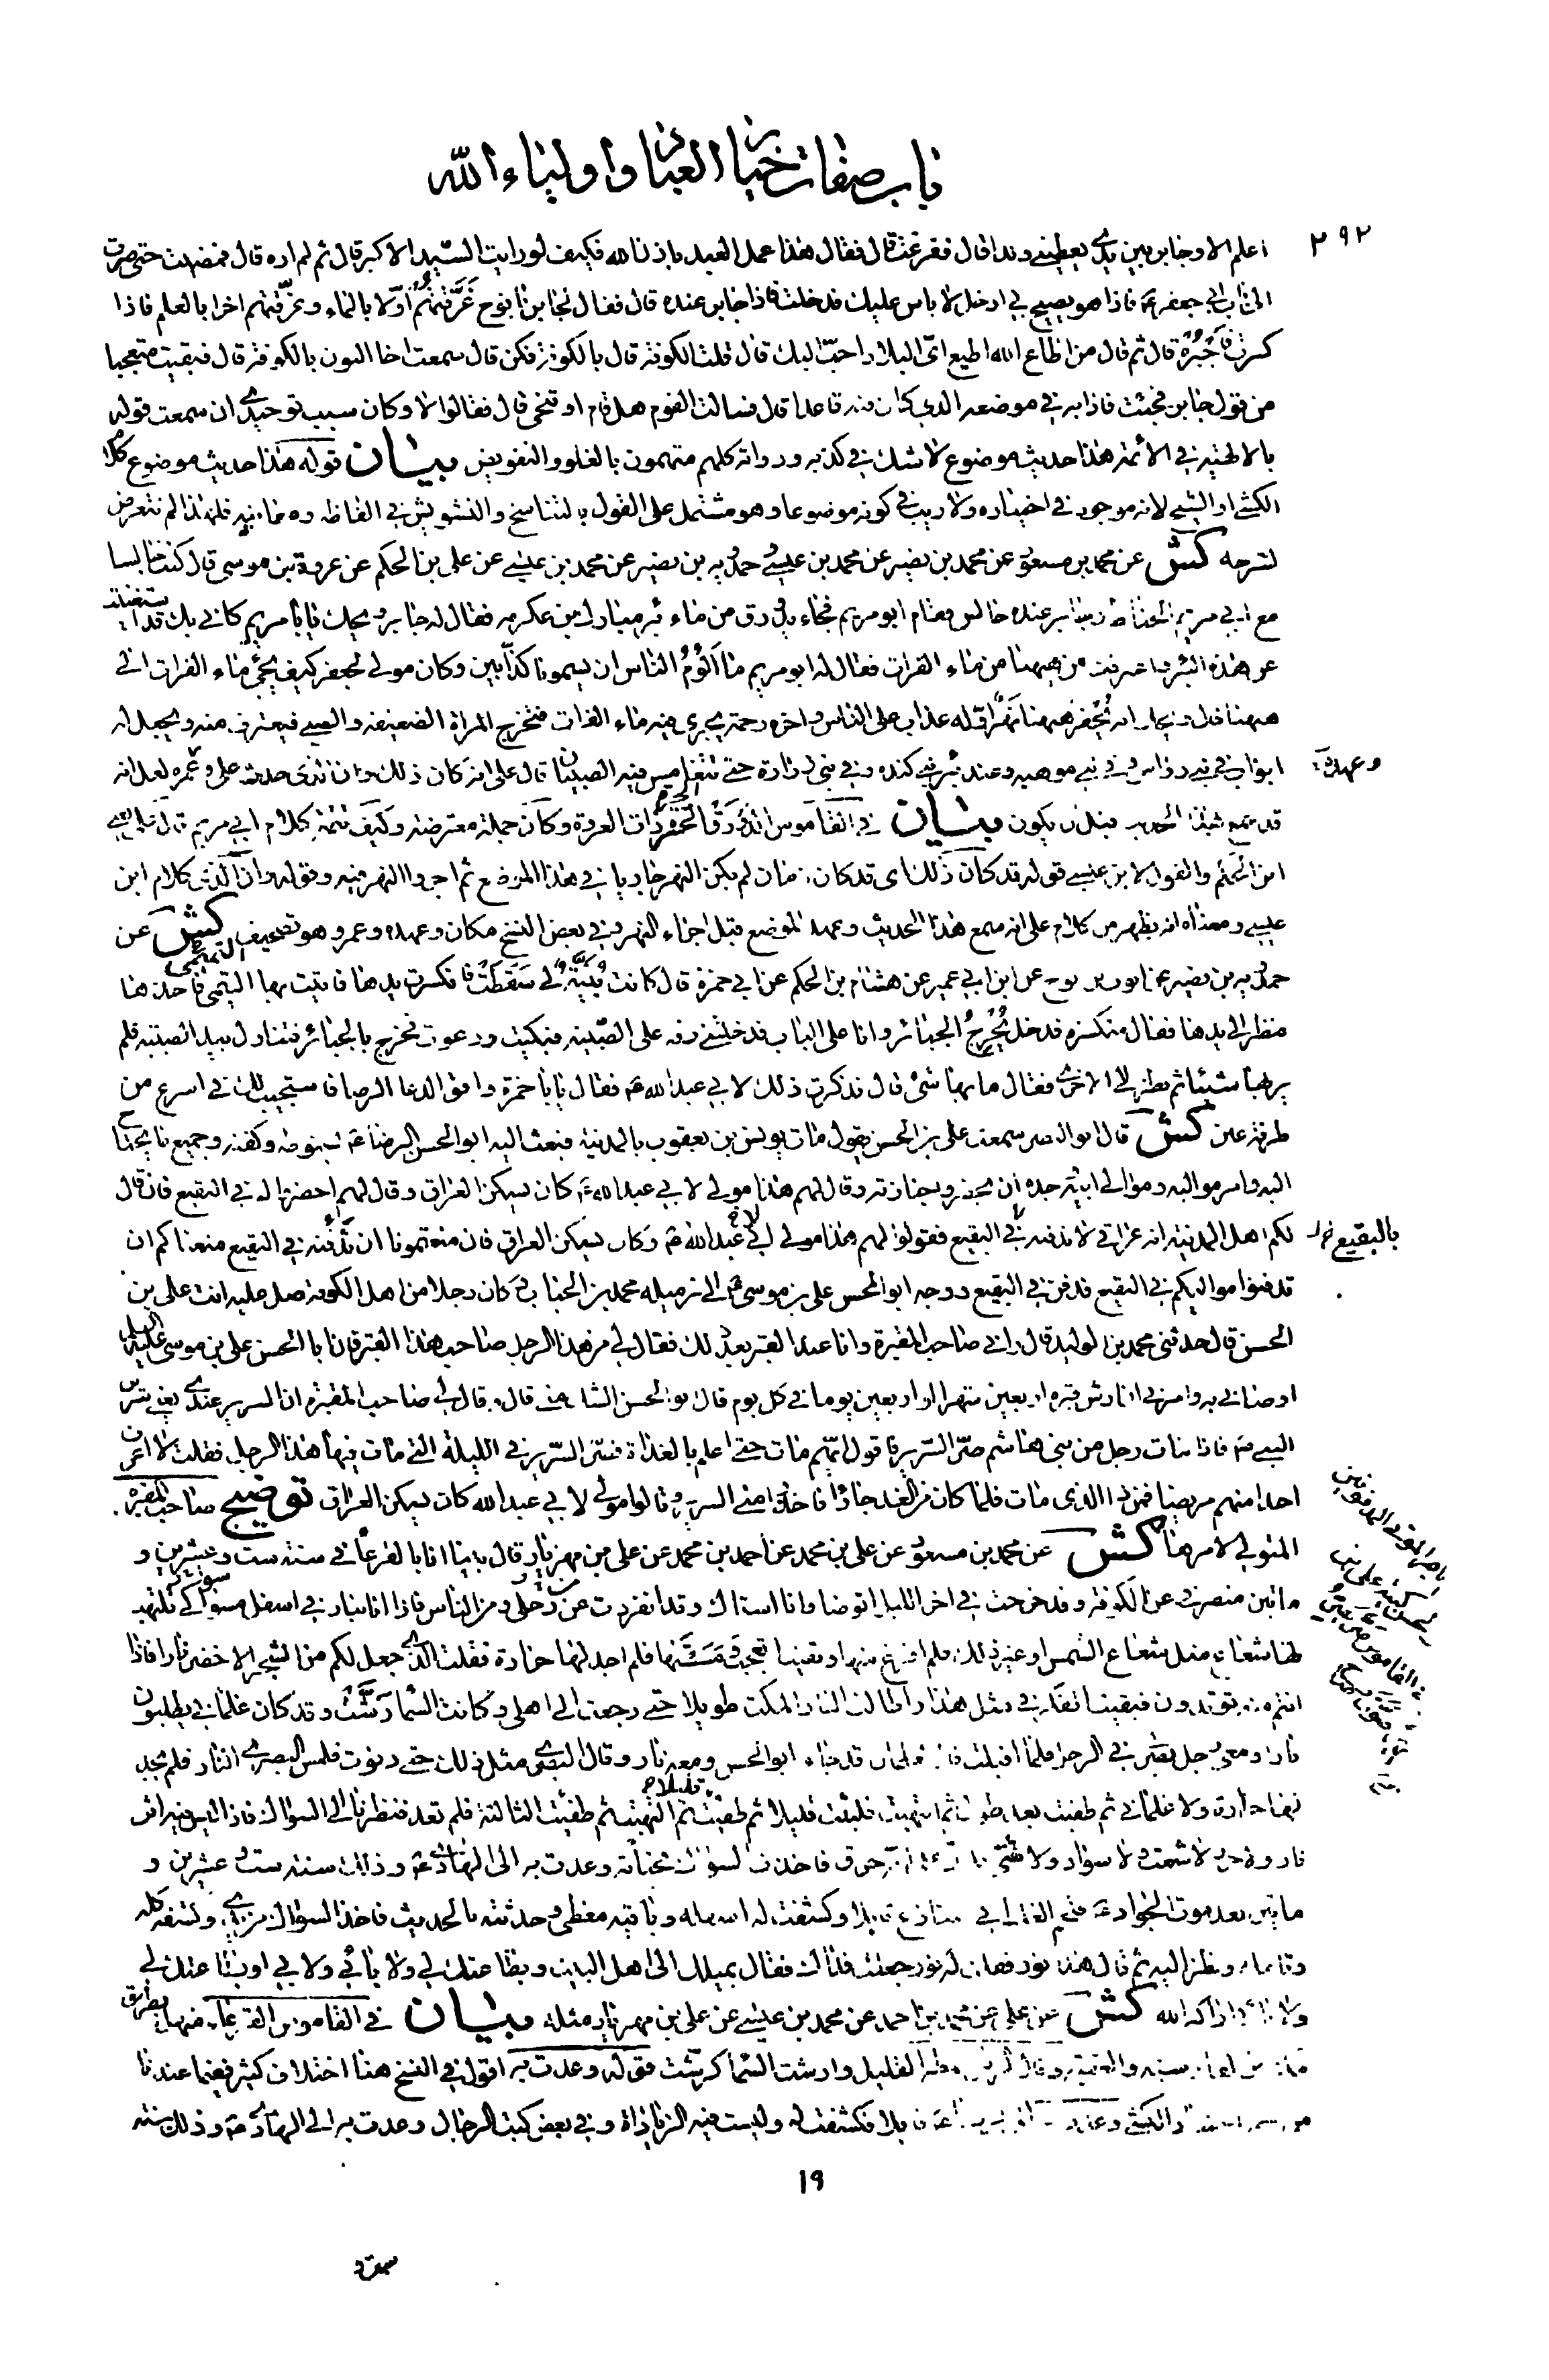 باب صفات خيار العباد واولياء الله
٢٩٢
اعلم الا وجابر بين يدي يعطيني وتدا قال فقال هذا عمل العبد باذن الله فكيف لو رايت السيد الاكبر قال ثم لم اره قال فمضيت حتى صرت
الى باب ابي جعفر ع فاذا هو يصيح بي ادخل لا باس عليك فدخلت فاذا جابر عنده قال فقال لجابر يا نوح غرقتهم اولا بالماء وغرقتهم اخرا بالعلم فاذا
كسرت فاجبره قال ثم قال من اطاع الله اطيع اي البلاد احب اليك قال قلت الكوفة قال بالكوفة فكن قال سمعت اخا النون بالكوفة قال فبقيت متعجبا
من قول جابر فجئت فاذا به في موضعه الذي كان فيه قاعدا قال فسالت القوم هل قام او تنحى قال فقالوا لا وكان سبب توحيدي ان سمعت قوله
بالالهية في الائمة هذا حديث موضوع لا شك في كذبه ورواته كلهم متهمون بالغلو والتفويض بيان قوله هذا حديث موضوع كلام
الكشي او الشيخ لانه موجود في اختياره ولا ريب في كونه موضوعا وهو مشتمل على القول بالتناسخ والتشويش في الفاظه فلهذا لم نتعرض
لشرحه كش عن محمد بن مسعود عن محمد بن نصير عن محمد بن عيسى وحمدويه بن نصير عن محمد بن عيسى عن علي بن الحكم عن عروة بن موسى قال كنت جالسا
مع ابي مريم الحناط وجابر عنده جالس فقام ابو مريم فجاء بدورق من ماء بئر مبارك بن عكرمة فقال له جابر ويحك يا ابا مريم كاني بك قد استغنيت
عن هذه البئر واغترفت من ههنا من ماء الفرات فقال له ابو مريم ما الوم الناس ان يسمونا كذابين وكان مولى لجعفر كيف يجيء ماء الفرات الى
ههنا قال ويحك انه يحفر ههنا نهر اوله عذاب على الناس واخره رحمة يجري فيه ماء الفرات فتخرج المراة الضعيفة والصبي فيغترف منه ويجعل له
ابواب في بني رواس وفي بني موهبة وعند بئر بني كندة وفي بني زرارة حتى تتغامس فيه الصبيان قال علي انه كان ذلك وان الذي حدث علي وعمره لعل انه
وعهده
قد سمع بهذا الحديث قبل ان يكون بيان في القاموس الدورق الجرة ذات العروة وكان جملة معترضة وكيف تتمة كلام ابي مريم قال علي يعني
ابن الحكم والقول لابن عيسى قوله قد كان ذلك اي قد كان زمان لم يكن النهر جاريا في هذا الموضع ثم اجروا النهر فيه وقوله وان الذي كلام ابن
عيسى ومعناه انه يظهر من كلام علي انه سمع هذا الحديث وعهد الموضع قبل اجراء النهر وفي بعض النسخ مكان وعهده وعمر وهو تصحيف كش عن
حمدويه بن نصير عن ايوب بن نوح عن ابن ابي عمير عن هشام بن الحكم عن ابي حمزة قال كانت بنية لي سقطت فانكسرت يدها فاتيت بها التيمي فاخذها
فنظر الى يدها فقال منكسرة فدخل يخرج الجبائر وانا على الباب فدخلتني رقة على الصبية فبكيت ودعوت فخرج بالجبائر فتناول بيد الصبية فلم
ير بها شيئا ثم نظر الى الاخرى فقال ما بها شيء قال فذكرت ذلك لابي عبد الله ع فقال يا ابا حمزة وافق الدعا الرضا فاستجيب لك في اسرع من
طرفة عين كش قال ابو النضر سمعت علي بن الحسن يقول مات يونس بن يعقوب بالمدينة فبعث اليه ابو الحسن الرضا ع بحنوطه وكفنه وجميع ما يحتاج
اليه وامر مواليه وموالي ابيه وجده ان يحضروا جنازته وقال لهم هذا مولى لابي عبد الله ع كان يسكن العراق وقال لهم احفروا له في البقيع فان قال
لكم اهل المدينة انه عراقي لا ندفنه في البقيع فقولوا لهم هذا مولى لابي عبد الله ع وكان يسكن العراق فان منعتمونا ان ندفنه في البقيع منعناكم ان
بالبقيع خ ل
تدفنوا مواليكم في البقيع فدفن في البقيع ووجه ابو الحسن علي بن موسى ع الى زميله محمد بن الحباب وكان رجلا من اهل الكوفة صل عليه انت علي بن
الحسن قال حدثني محمد بن الوليد قال راني صاحب المقبرة وانا عند القبر بعد ذلك فقال لي من هذا الرجل صاحب هذا القبر فان ابا الحسن علي بن موسى عليه السلام
اوصاني به وامرني ان ارش قبره اربعين شهرا او اربعين يوما في كل يوم قال ابو الحسن الشك مني قال وقال لي صاحب المقبرة ان السرير عندي يعني سرير
النبي ص فاذا مات رجل من بني هاشم صر السرير فاقول ايهم مات حتى اعلم بالغداة فصر السرير في الليلة التي مات فيها هذا الرجل فقلت لا اعرف
احدا منهم مريضا فمن ذا الذي مات فلما كان من الغد جاؤا فاخذوا مني السرير وقالوا مولى لابي عبد الله كان يسكن العراق توضيح صاحب المقبرة
المتولي لامرها كش عن محمد بن مسعود عن علي بن محمد عن احمد بن محمد عن علي بن مهزيار قال بينا انا بالقرعاء في سنة ست وعشرين و
مائتين منصرفي عن الكوفة وقد خرجت في اخر الليل اتوضا وانا استاك وقد انفردت عن رحلي ومن الناس فاذا انا بنار في اسفل مسواكي تلتهب
لها شعاع مثل شعاع الشمس او غير ذلك فلم افزع منها وبقيت اتعجب ومسستها فلم اجد لها حرارة فقلت الذي جعل لكم من الشجر الاخضر نارا فاذا
انتم منه توقدون فبقيت اتفكر في مثل هذا واطالت النار المكث طويلا حتى رجعت الى اهلي وكانت السما رشت وقد كان غلماني يطلبون
نارا ومعي رجل بصري في الرحل فلما اقبلت قال الغلمان قد جاء ابو الحسن ومعه نار وقال البصري مثل ذلك حتى دنوت فلمس البصري النار فلم يجد
لها حرارة ولا غلماني ثم طفيت بعد طول ثم التهبت فلبثت قليلا ثم طفيت ثم التهبت ثم طفيت الثالثة فلم تعد فنظرنا الى السواك فاذا ليس فيه اثر
نار ولا حر ولا شعث ولا سواد ولا شيء يدل على انه حرق فاخذت السواك فخباته وعدت به الى الهادي ع وذلك سنة ست وعشرين و
مائتين بعد موت الجواد ع وكشفت له اسفله وباقيه مغطى وحدثته بالحديث فاخذ السواك من يدي وكشفه كله
وتامله ونظر اليه ثم قال هذا نور فقلت له نور جعلت فداك فقال بميلك الى اهل البيت وبطاعتك لي ولابائي ولابي او بطاعتك لي
ولابائي اراكه الله كش عن علي عن محمد بن احمد عن محمد بن عيسى عن علي بن مهزيار مثله بيان في القاموس القرعاء منهل بطريق
المطر القليل وارشت السما كرشت قوله وعدت به اقول في النسخ هنا اختلاف كثير ففيما عندنا
والكشي فكشفت له وليست فيه الزيادة وفي بعض كتب الرجال وعدت به الى الهادي ع وذلك سنة
١٩